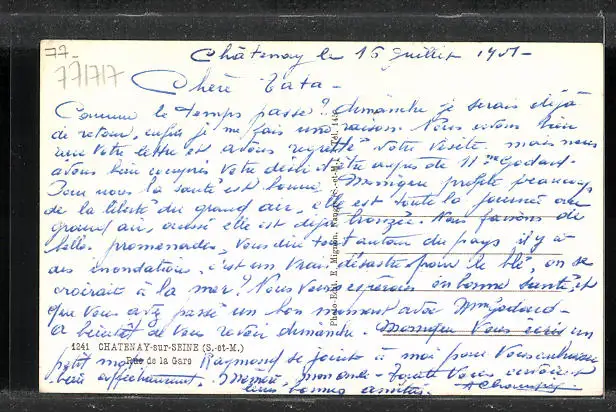 77-
77/717
Châtenay le 15 Juillet 1951-
Chère Tata-
Comme le temps passe? dimanche je serais déjà
de retour, enfin je me fais une raison. Nous avons bien
votre lettre et avons regretté votre visite. mais nous
avons bien compris votre désir d'être auprès de Mme Godard.
Pour nous la santé est bonne. Monique profite beaucoup
de la liberté du grand air, elle est toute la journée au
grand air, aussi elle est déjà bronzée. Nous faisons de
belles promenades, vous dire tout autour du pays il y a
des inondations, c'est un vrai désastre pour le blé, on se
croirait à la mer? Nous vous espérons en bonne santé, et
que vous avez passé un bon moment avec Mme Godard-
A bientôt de vous revoir dimanche. Monique vous écris un
1241 CHATENAY-sur-SEINE (S.-et-M.)
Rue de la Gare
petit mot Raymond se joint à moi pour vous embrasser
bien affectueusement. Mémère, monde vous envoient
leurs bonnes amitiés.
Photo-Edit. E. Mignon